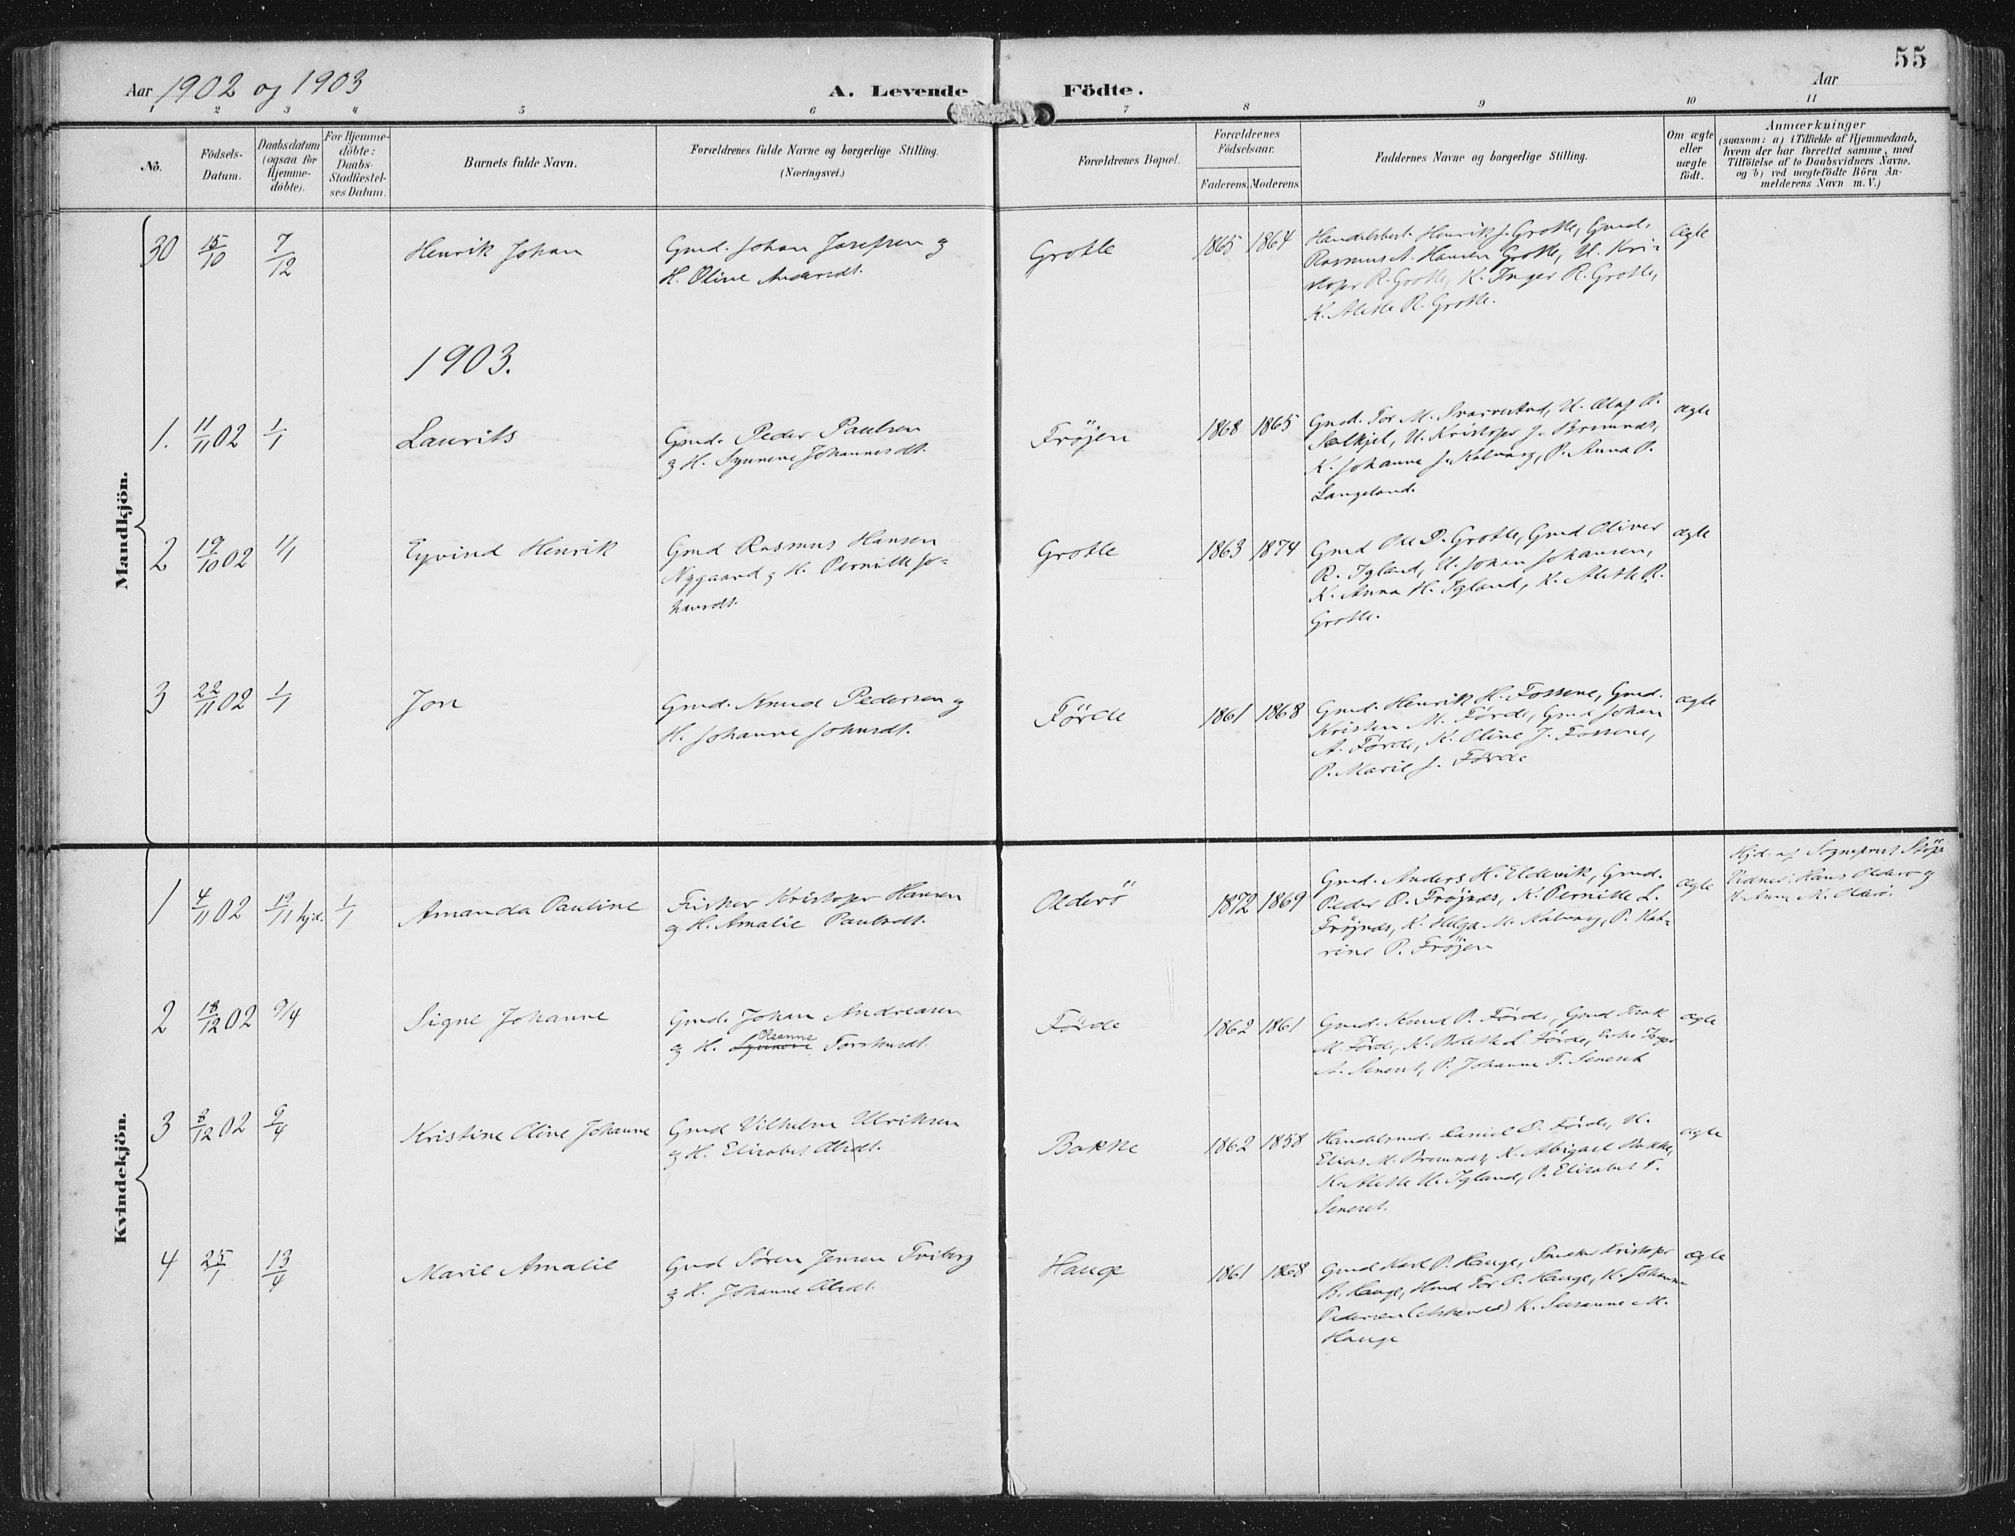 55
Aar 1902 og 1903
A. Levende Födte.
Aar
1 2 3 4 5 6 7 8 9 10 11
No.
Födsels-
Datum.
Daabsdatum
(ogsaa for
Hjemme-
döbte).
For Hjemme-
döbte:
Daabs-
Stadfæstel-
ses Datum.
Barnets fulde Navn.
Forældrenes fulde Navne og borgerlige Stilling.
(Næringsvei.)
Forældrenes Bopæl.
Forældrenes
Födselsaar.
Faderens. Moderens
Faddernes Navne og borgerlige Stilling.
Om ægte
eller
uægte
födt.
Anmærkninger
(saasom: a) i Tilfælde af Hjemmedaab,
hvem der har forrettet samme, med
Tilföielse af to Daabsvidners Navne.
og b) ved uægtefödte Börn An-
melderens Navn m. V.)
Mandkjön.
30 15/10 7/12 Henrik Johan
Gmd. Johan Josefsen og
H. Oline Andersdt.
Grotle 1865 1864
Handelsbest. Henrik J. Grotle, Gmd.
Rasmus A. Hansen Grotle, U. Kri-
stofer R. Grotle, K. Inger R. Grotle,
K. Alette R. Grotle.
Ægte
1903.
1. 11/11 02 1/1 Laurits
Gmd. Peder Paulsen
og H. Synneve Johannesdt.
Fröjen 1868 1865
Gmd. Tor M. U. Olaf
U. Kristofer J. Bremnes,
K. Johanne J. Kalvaag, P. Anna P.
Langeland.
ægte
2 19/10 02 1/1 Eyvind Henrik
Gmd Rasmus Hansen
Nygaard og H. Pernille Jo-
hansdt.
Grotle 1863 1874
Gmd Ole D. Grotle, Gmd Oliver
R. Igland, U. Johan Johansen,
K. Anna H. Igland, K. Alette R.
Grotle.
ægte
3 22/11 02 1/1 Jon
Gmd. Knud Pedersen og
H. Johanne Johnsdt.
Förde 1861 1868
Gmd. Henrik H. Fossene, Gmd.
Kristen M. Förde, Gmd Johan
A. Förde, K. Oline J. Fossene,
P. Marie J. Förde
ægte
Kvindekjön.
1 4/11 02 19/11 hjd. 1/1 Amanda Pauline
Fisker Kristofer Hansen
og H. Amalie Paulsdt.
Olderö 1872 1869
Gmd. Anders H. Elderik, Gmd.
Peder O. Fröjnes, K. Pernille L.
Fröjnes, K. Helga M. Kalvaag, P. Kat-
rine P. Fröjen
ægte
Hjd. af Sogneprest
Vidner: Hans Olderö og
M. Olderö.
2 18/12 02 9/4 Signe Johanne
Gmd. Johan Andreasen
Oleanne
og H. Synneve Torstensdt.
Förde 1862 1861
Gmd. Knud P. Förde, Gmd Isak
M. Förde, K. Bolette L Förde, Inger
A. Seneset, P. Johanne T. Seneset
ægte
3 8/12 02 9/4 Kristine Oline Johanne
Gmd Vilhelm Ulriksen
og H. Elisabet Olsdt.
Bakke 1862 1858
Handelsmd. Daniel E. Förde, U.
Elias M. Bremnes, K. Abigael Bakke,
K. Alette U. Igland, P. Elisabet T.
Seneset.
ægte
4 25/1 13/4 Marie Amalie
Gmd Sören Jensen Tviberg
og H. Johanne Olsdt.
Hauge 1861 1868
Gmd Karl P. Hauge, Kristofer
B. Hauge, Tor O. Hauge, K. Johanne
Pedersen K. Susanne M.
Hauge
ægte